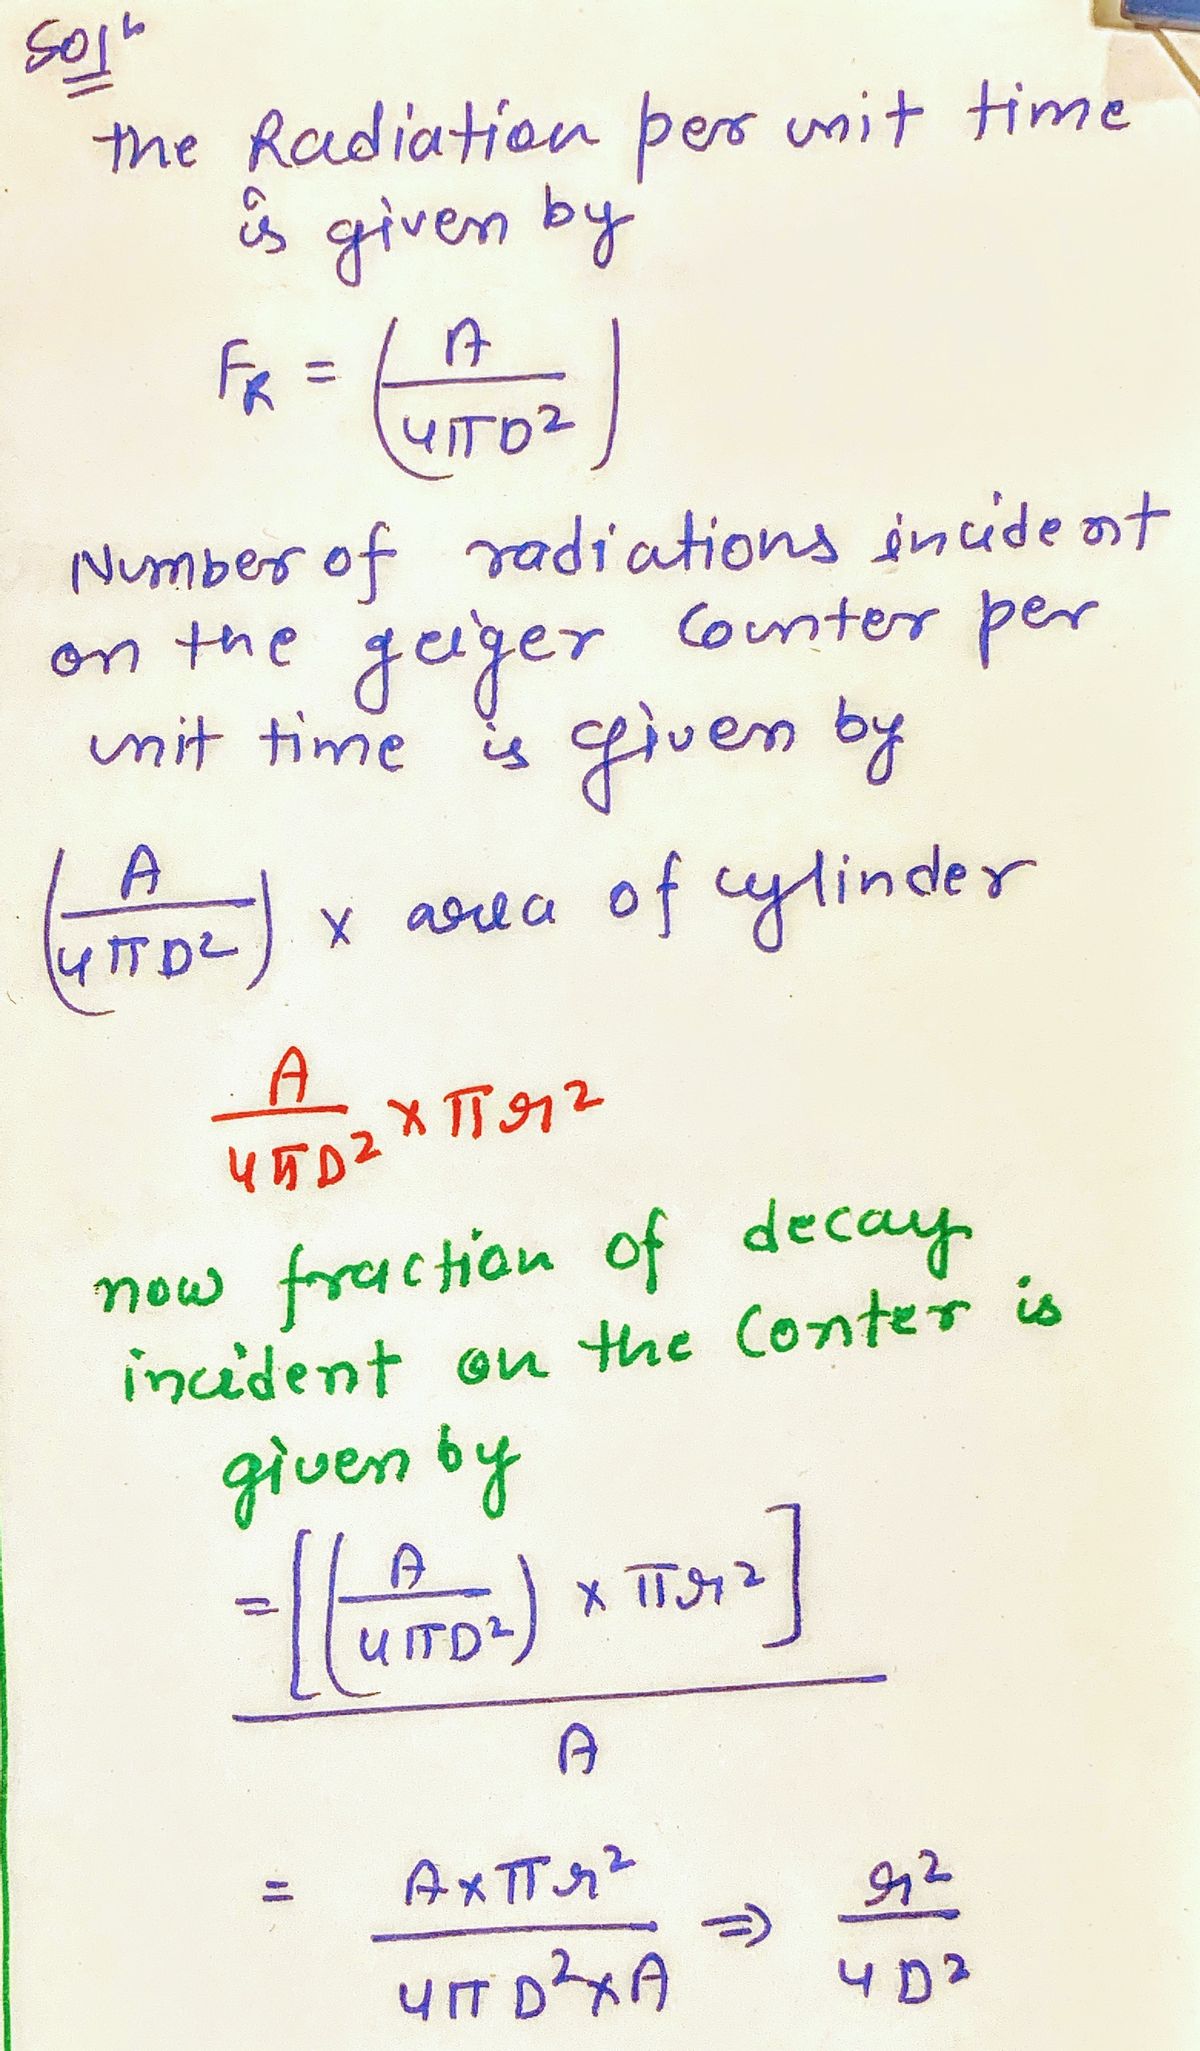 Solⁿ
the Radiation per unit time
is given by
F_R = (A / 4πD²)
Number of radiations incident
on the geiger counter per
unit time is given by
(A / 4πD²) × area of cylinder
A / 4πD² × πr²
now fraction of decay
incident on the conter is
given by
= [(A / 4πD²) × πr²] / A
= A×πr² / 4πD²×A ⇒ r² / 4D²